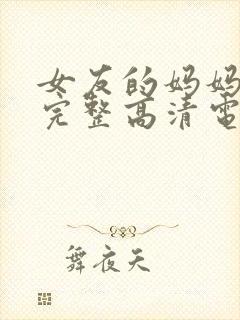 女友的妈妈
完整高清电
舞夜天